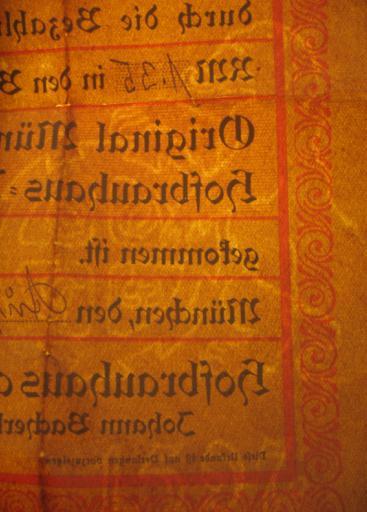 durch die Bezahl
RM 1.35 in den B
Original Mün
Hofbrauhaus-
gekommen ist.
München, den
Hofbrauhaus
Johann Bacherl
Diese Urkunde ist auf Verlangen vorzuzeigen